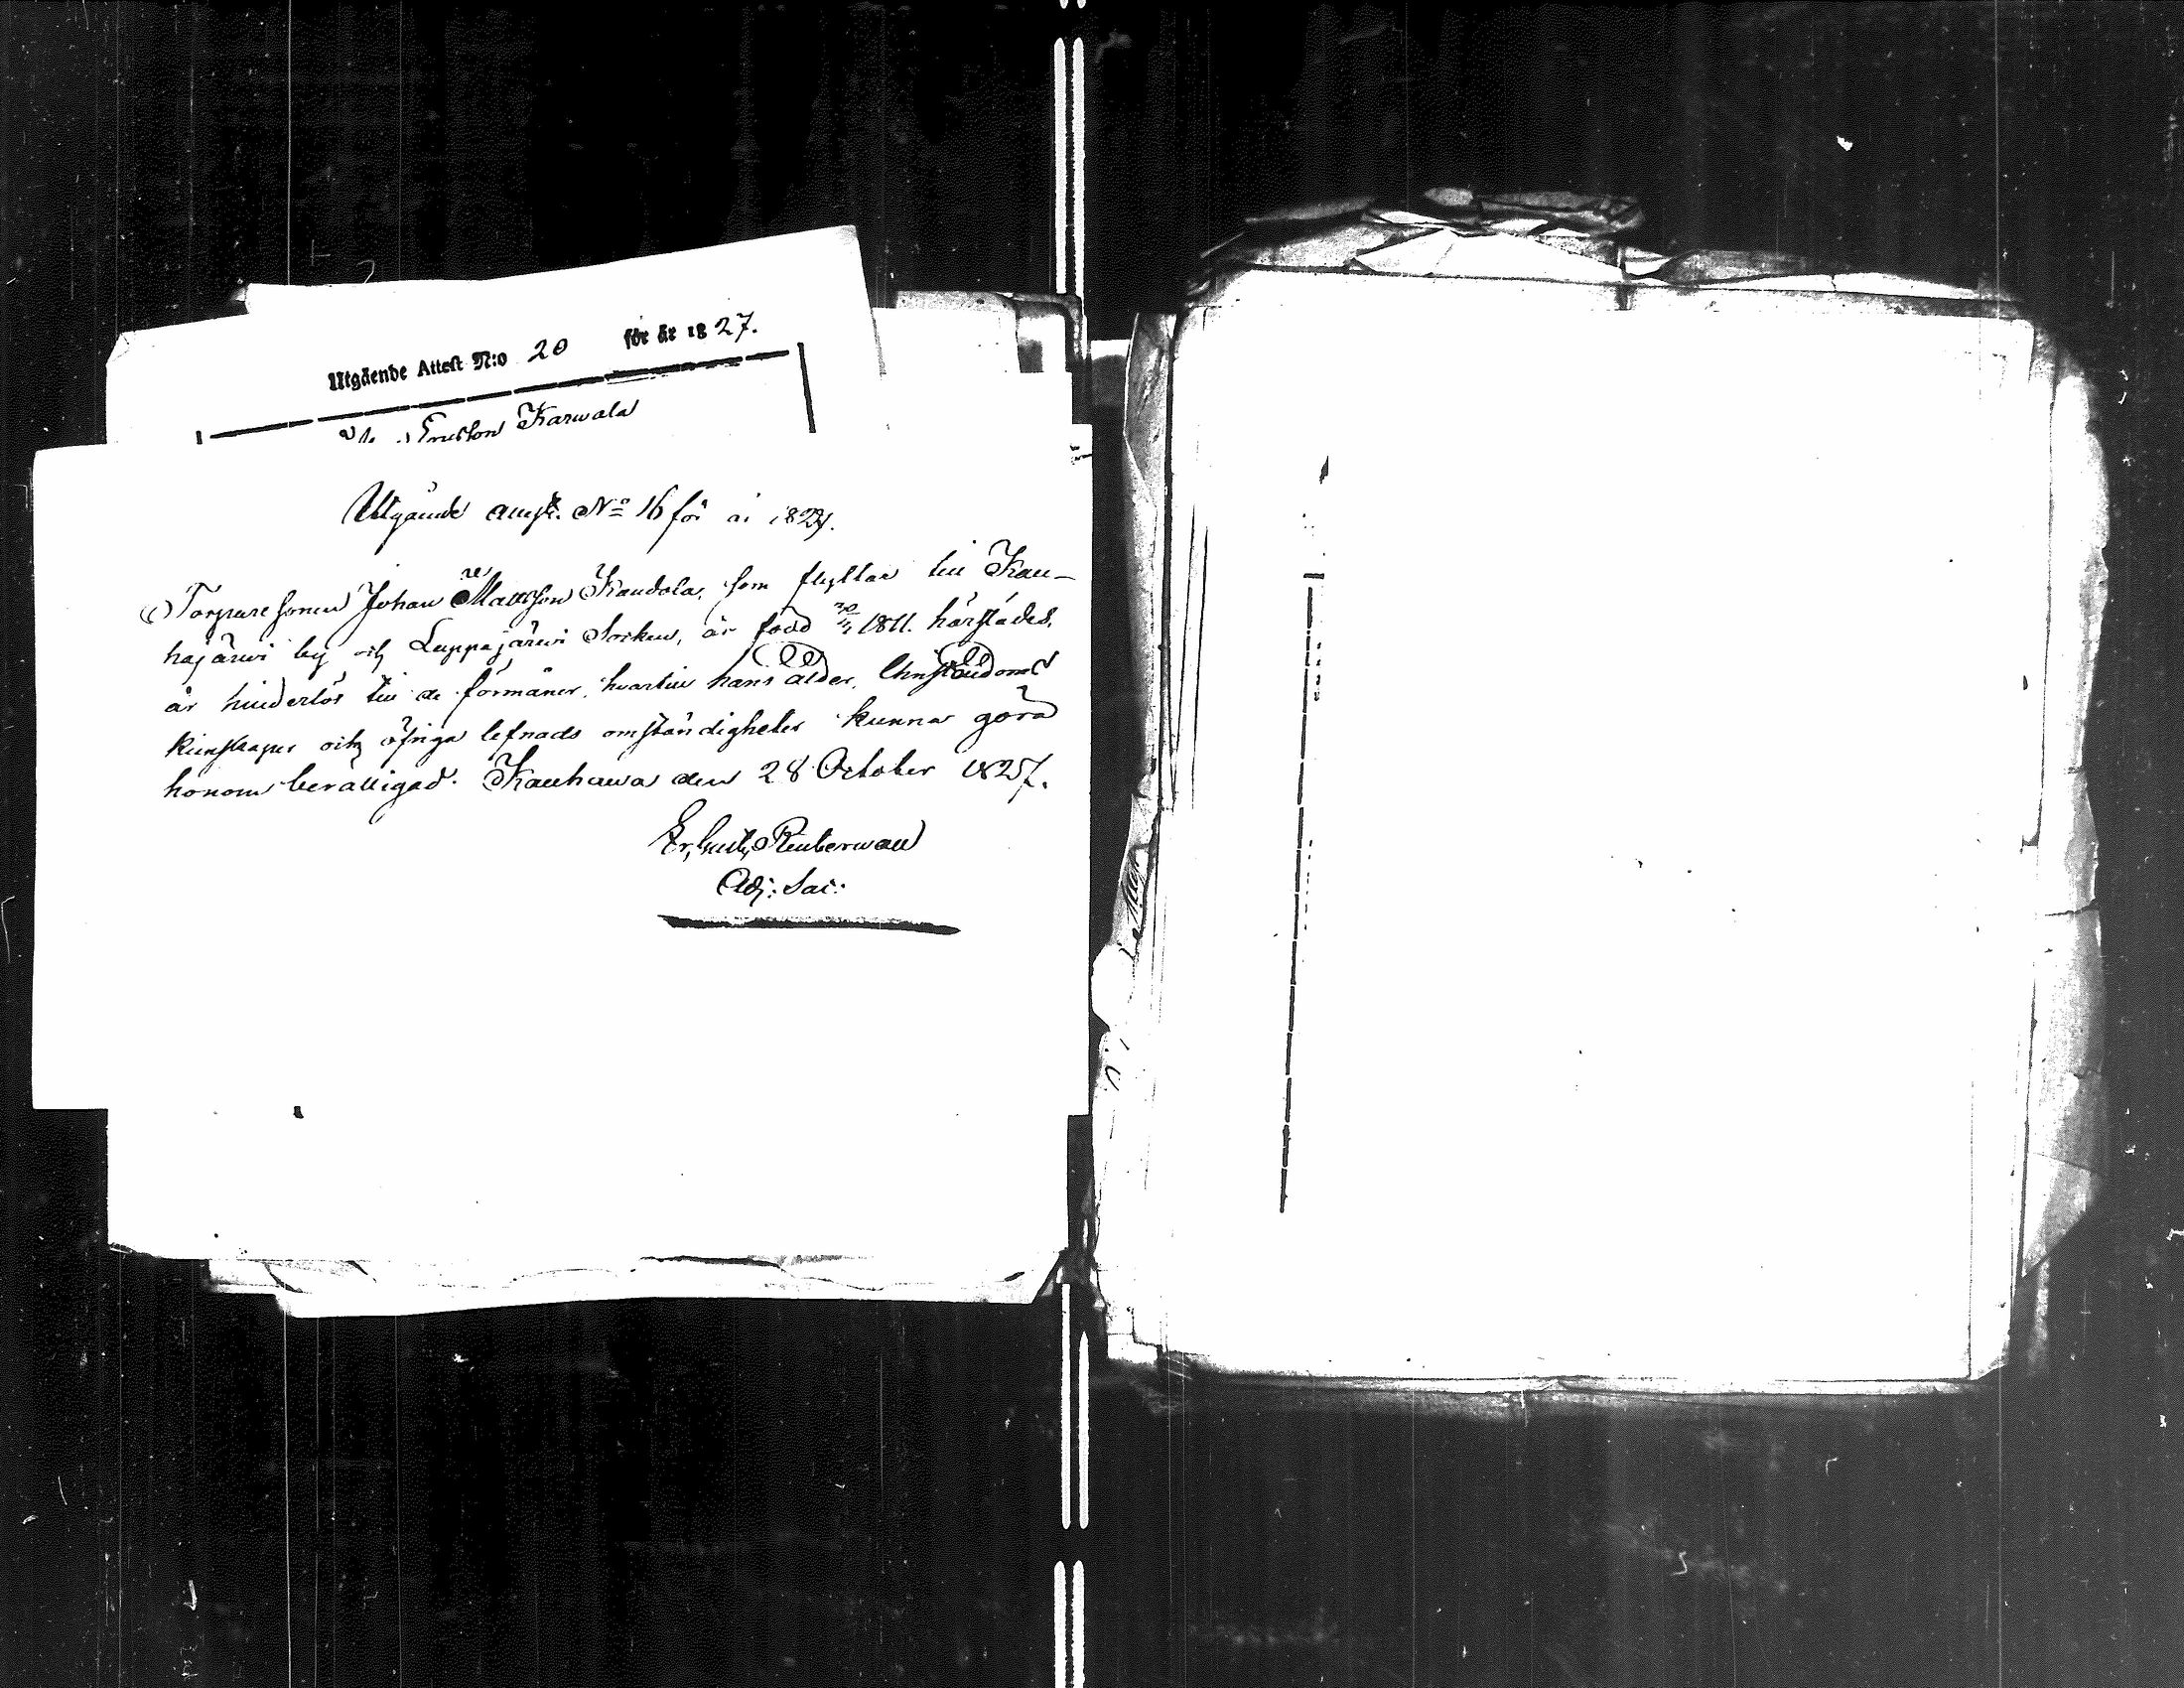 Utgående Attest N:o 20 för år 1827.
Eriksson Karwala
Utgående attest. No 16 för år 1827.
Torparesonen Johan Mattsson Kandola, som flyttar till Kau-
hajärwi by och Lappajärwi Socken, är född 1811. härstädes,
är hinderlös till de förmåner, hvartill hans ålder, Christendoms
kunskaper och öfriga lefnads omständigheter kunna göra
honom berättigad. Kauhawa den 28 October 1827.
Reuterwall
Adj: Sac: